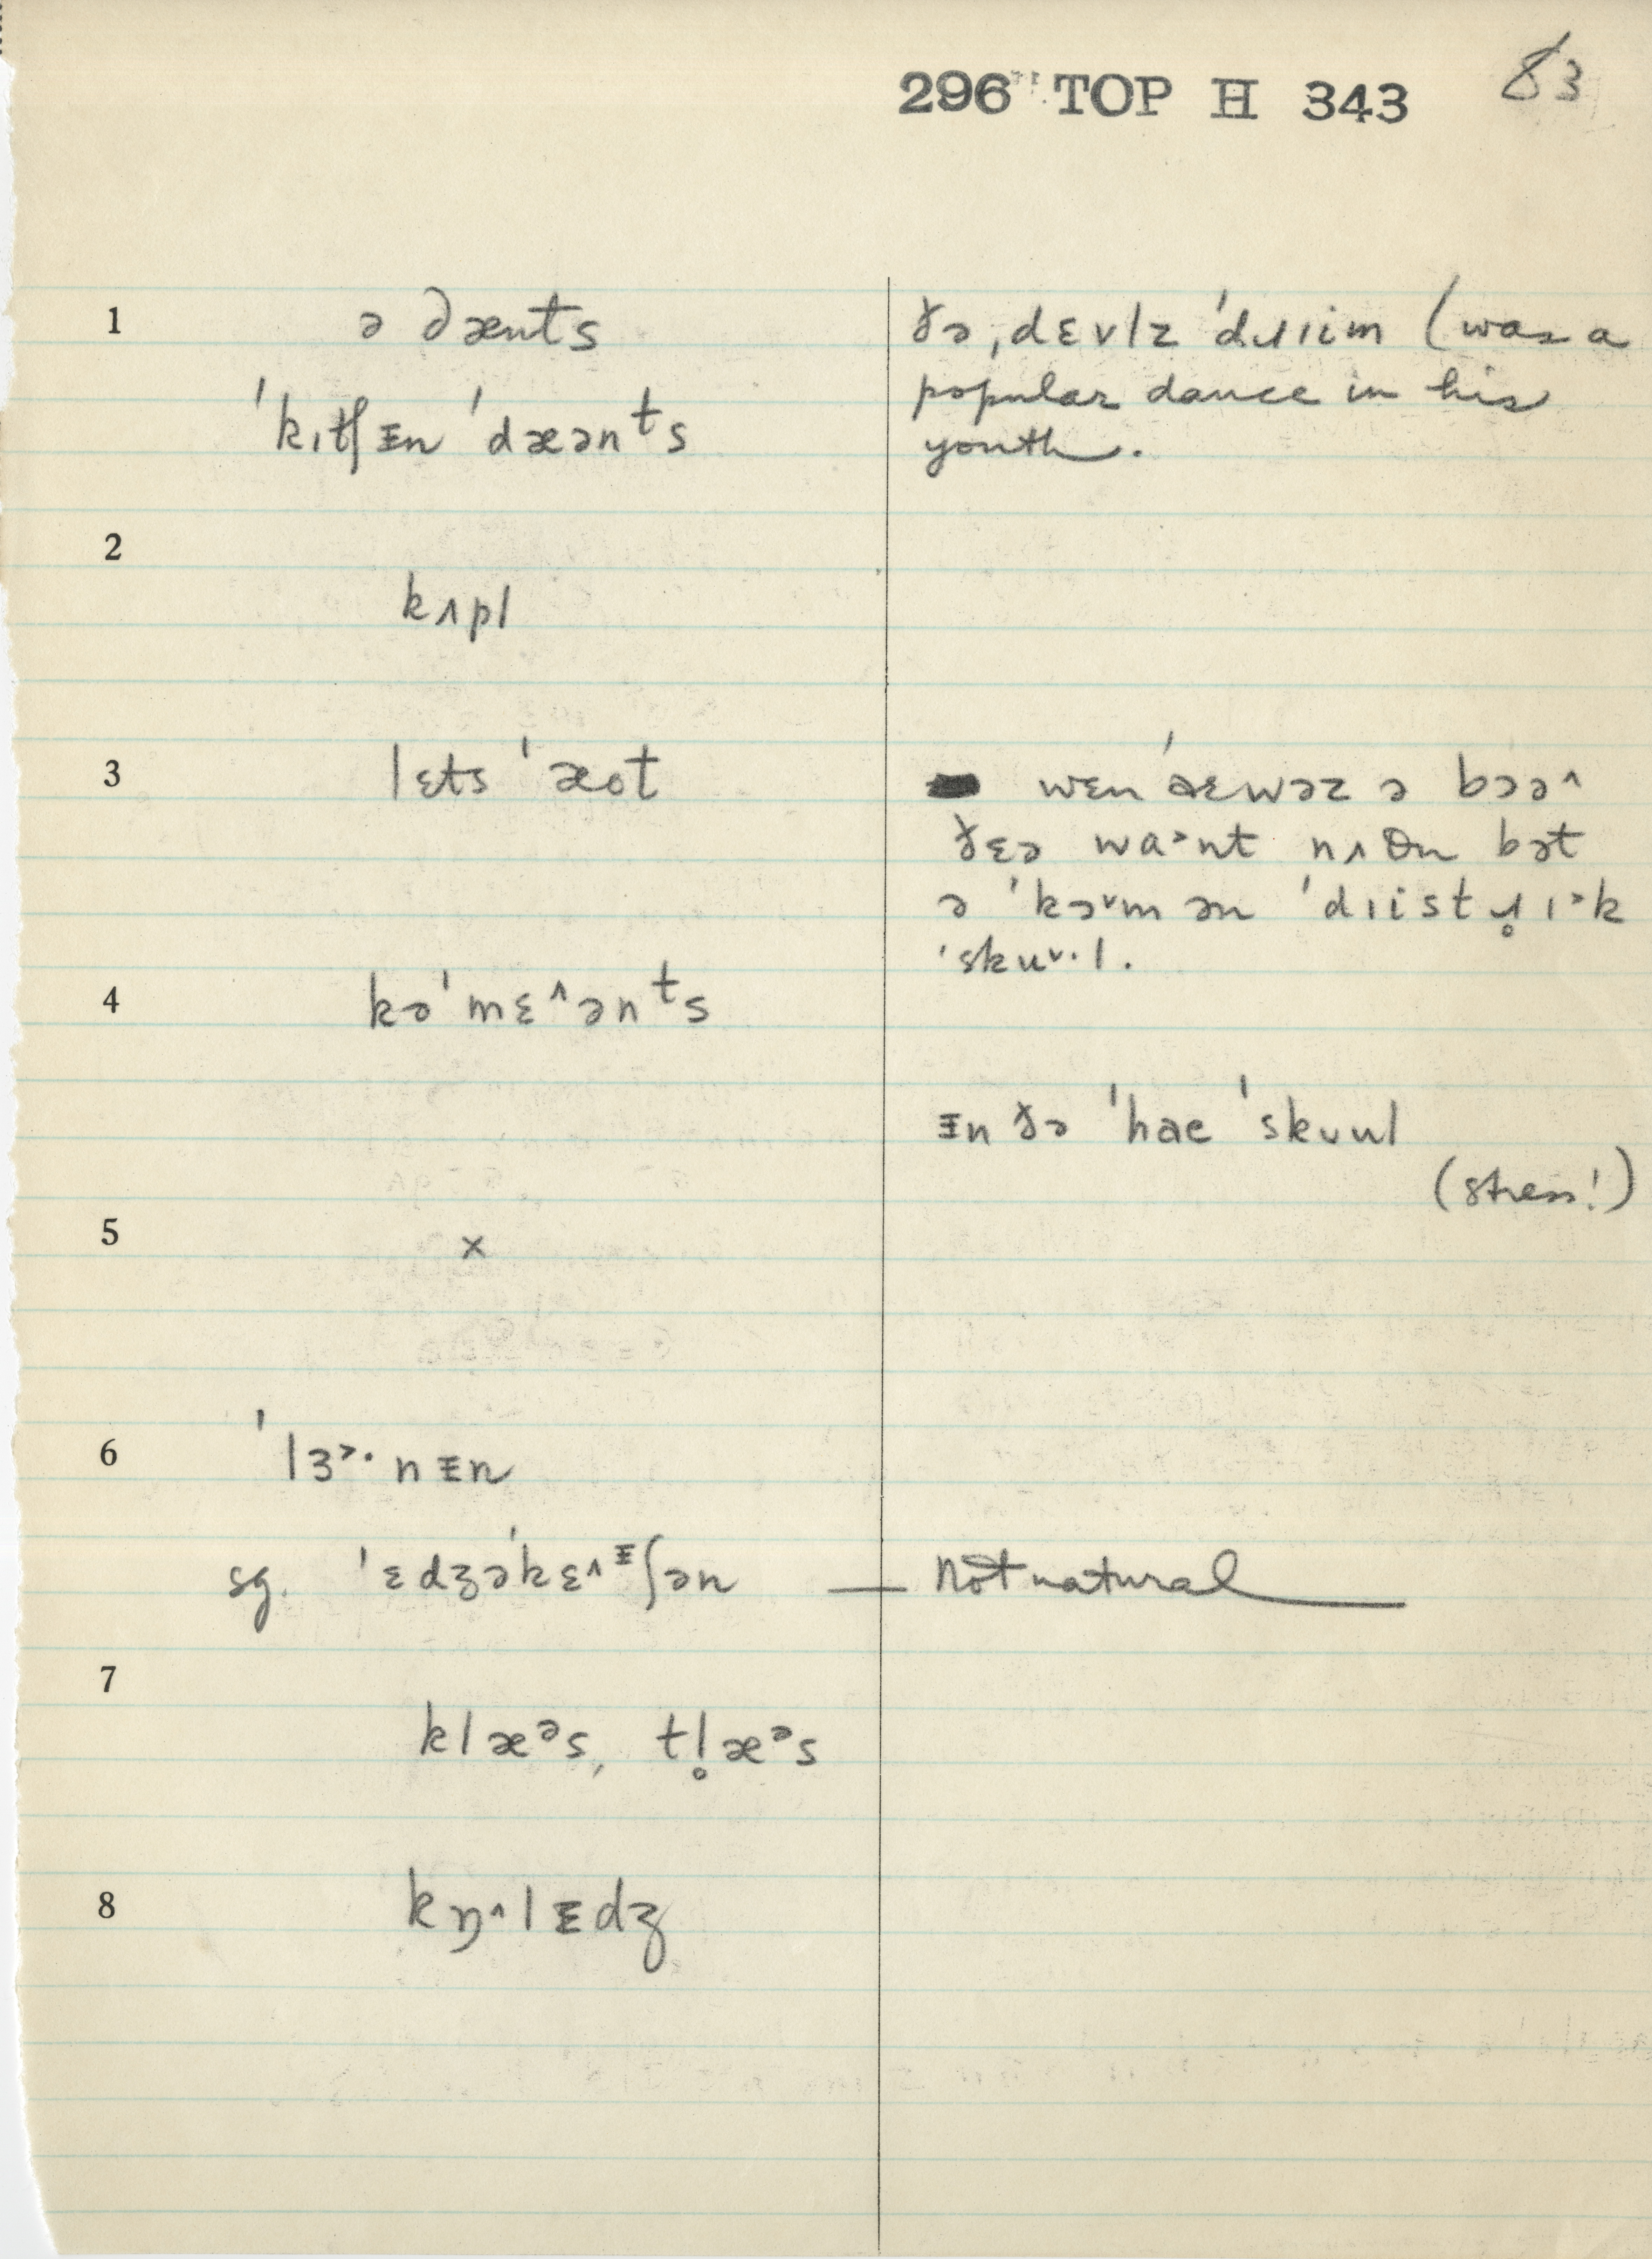 296 TOP H 343 83
1 ə dænts
ˈkɪtʃᵻn ˈdæənᵗs
ðə ˌdɛvlz ˈdɹɪim (was a
popular dance in his
youth.
2
kʌpl
3 lɛts ˈæot
wɛn ˈaɛ wəz ə bɔə˄
ðɛə wa˃nt nʌθn bət
ə ˈkɔ˅mən ˈdɪistɹ̥ɪ˃k
ˈsku˅·l.
4 kəˈmɛ˄ənᵗs
ᵻn ðə ˈhae ˈskʊul
(stress!)
5 x
6 ˈlɜ˃·nᵻn
sg. ˈɛdʒəˈkɛ˄ᵻʃən — Not natural
7
klæᵊs, tl̥æᵊs
8 kŋ˄lᵻdʒ